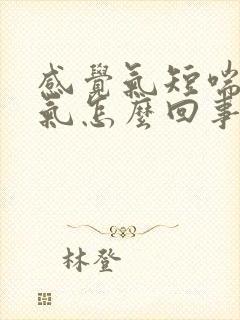 感覺氣短喘
氣怎麼回事
林登